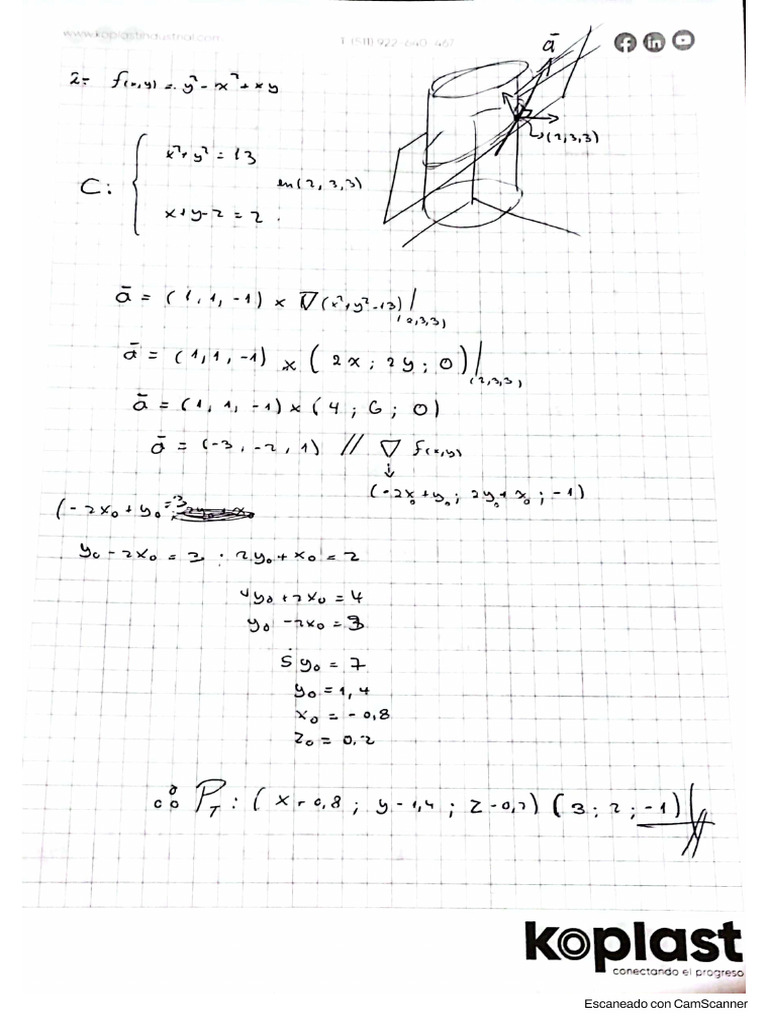 www.koplastindustrial.com
T (511) 922-640-467
2:- f(x,y) = y² - x² + xy
ā
(2,3,3)
C: { x²+y² = 13
en (2,3,3)
x+y-z = 2.
ā = (1, 1, -1) × ∇(x²+y²-13)|(2,3,3)
ā = (1, 1, -1) × (2x ; 2y ; 0)|(2,3,3)
ā = (1, 1, -1) × (4 ; 6 ; 0)
ā = (-3, -2, 1) // ∇ f(x,y)
↓
(-2x₀+y₀ ; 2y₀+x₀ ; -1)
(-2x₀ + y₀ = 3
y₀ - 2x₀ = 3 ; 2y₀ + x₀ = 2
4y₀ + 2x₀ = 4
y₀ - 2x₀ = 3
5y₀ = 7
y₀ = 1,4
x₀ = -0,8
z₀ = 0,2
∴ P_T : (x+0,8 ; y-1,4 ; z-0,2) (3 ; 2 ; -1)
koplast
conectando el progreso
Escaneado con CamScanner